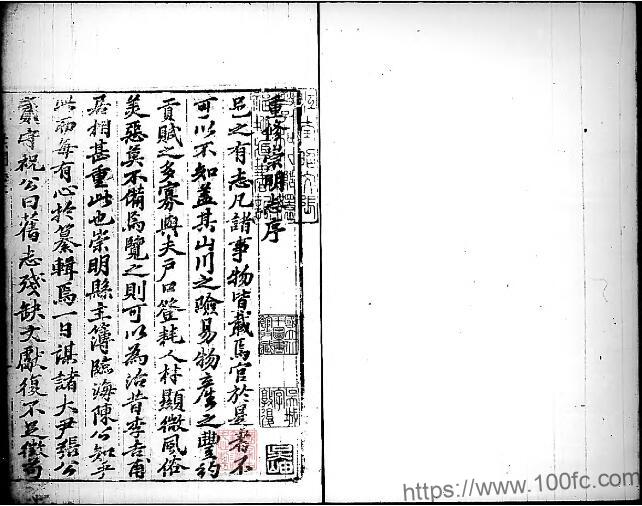 重修崇明志序
邑之有志凡諸事物皆載焉官於是者不
可以不知蓋其山川之險易物產之豐約
貢賦之多寡與夫戶口登耗人材顯微風俗
美惡莫不備焉覽之則可以為治昔李吉甫
居相甚重此也崇明縣主簿臨海陳公知乎
此而每有心於纂輯焉一日謀諸大尹張公
貳守祝公曰舊志殘缺文獻復不足徵苟
https://www.100fc.com